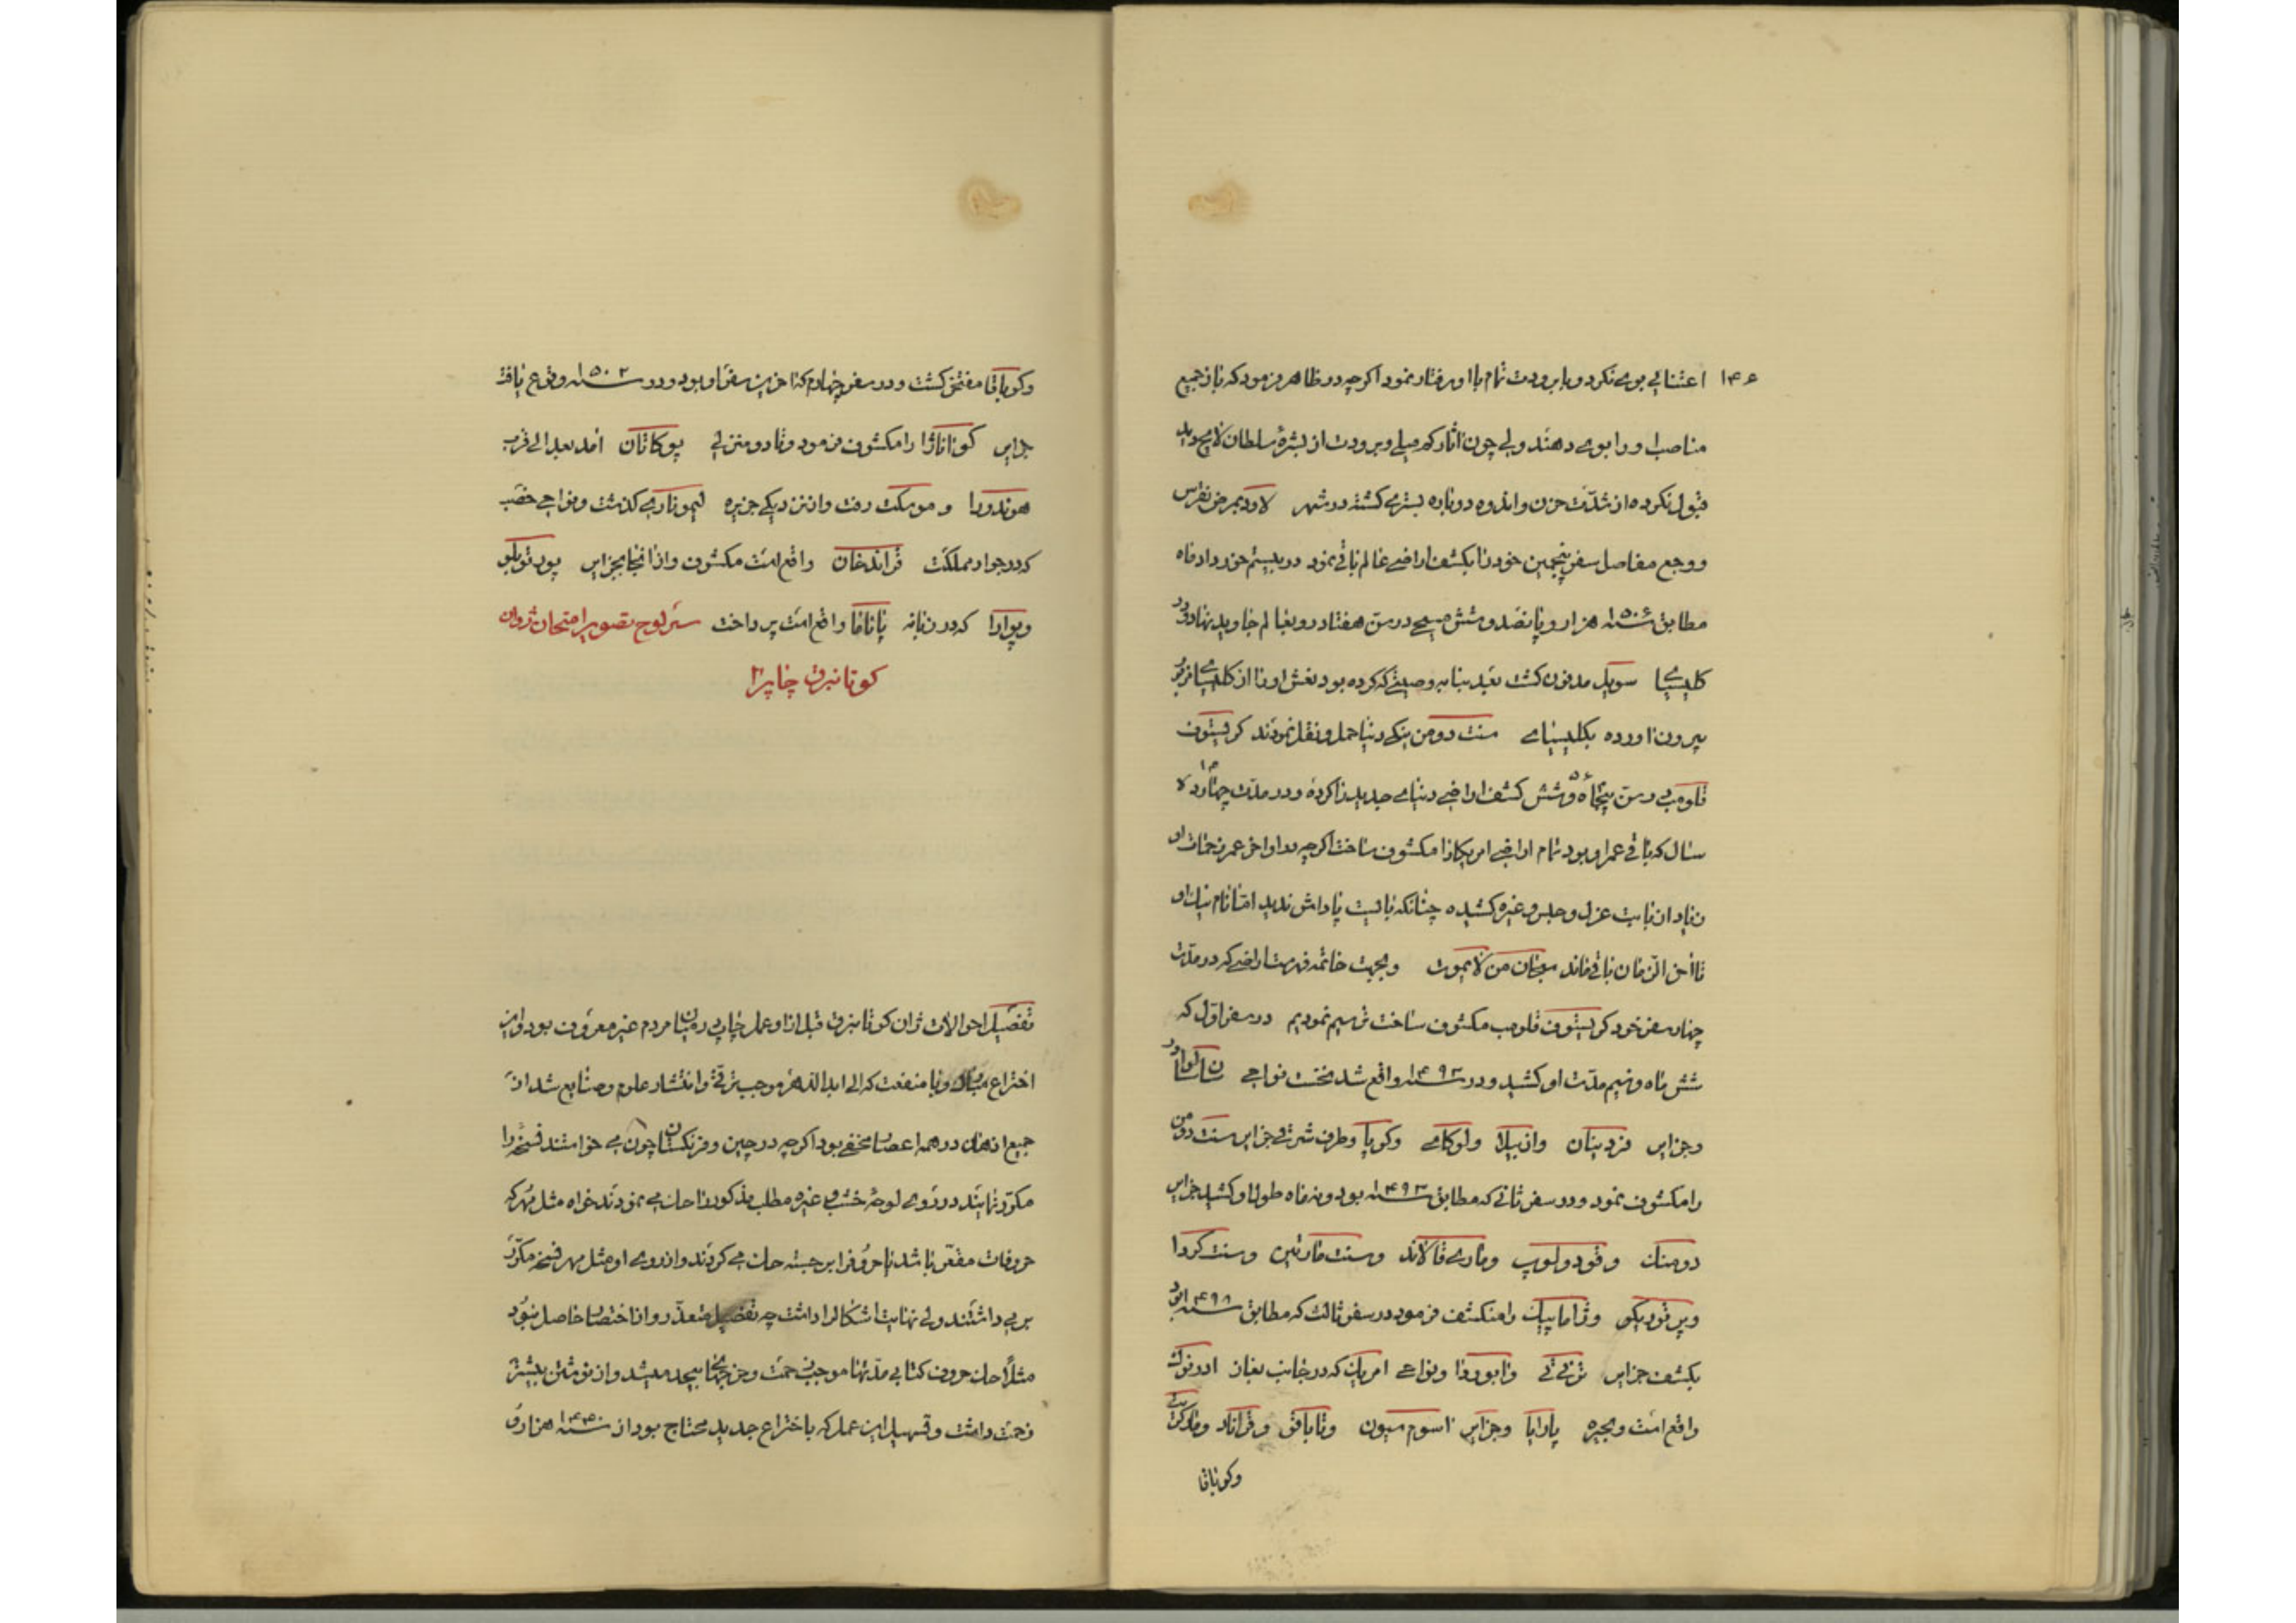 ۱۴۶ اعتنائی بوی نکرد و با برودت تمام با او رفتار نمود اکرچه در ظاهر فرمود که باز جمیع
مناصب او را بوی دهند ولی چون اثار کم میلی و برودت از بشرهٔ سلطان لایح دید
قبول نکرده از شدّت حزن و اندوه دوباره بستری کشته در شهر لاودیم مرض نقرس
و وجع مفاصل سفر پنجمین خود را بکشف اراضی عالم باقی نمود در بیستم خرداد ماه
مطابق سنه ۱۵۰۶ هزار و پانصد و شش مسیحی در سن هفتاد و بعالم جاوید نهاد و در
کلیسیای سویل مدفون کشت بعد بنا بر وصیتی که کرده بود نعش او را از کلیسیای مزبور
بیرون اورده بکلیسیای سنت دومن ینکی دنیا حمل و نقل نمودند کریستوف
قلومب در سن پنجاه و شش کشف اراضی دنیای جدید را کرده و در مدّت چهارده
سال که باقی عمر او بود تمام اراضی امریکا را مکشوف ساخت اکرچه در اواخر عمر زحمات او
زیاد از بابت عزل و حبس و غیره کشیده چنانکه بایست پاداش ندید امّا نام نیک او
تا آخر الزمان باقی ماند سبحان من لا یموت و بجهت خاتمه فهرست اراضی که در مدّت
چهار سفر خود کریستوف قلومب مکشوف ساخت ترسیم نمودیم در سفر اوّل که
شش ماه و نیم مدّت او کشید و در سنه ۱۴۹۲ واقع شد نخست نواحی سان سالوادور
و جزایر فردینان و ازبیلا و لوکای و کوبا و طرف شرقی جزایر سنت دومن
را مکشوف نمود و در سفر ثانی که مطابق سنه ۱۴۹۳ بود و نه ماه طول او کشید جزایر
دومنیک و قودولوپ و ماری قالاند و سنت مارتین و سنت کروا
و پرتوریکو و ژامائیک را منکشف فرمود در سفر ثالث که مطابق سنه ۱۴۹۸ بود
بکشف جزایر ترنی تی و نواحی امریک که در جانب بغاز اورنوک
واقع است و بحیره پاریا و جزایر اسوم سیون و تاباقو و قراناد و مارکریت
و کوباقا
و کوباقا مفتخر کشت و در سفر چهارم که آخرین سفر او بود و در سنه ۱۵۰۲ وقوع یافت
جزایر کواناژا را مکشوف فرمود و تا دو منزلی یوکاتان آمد بعد الی قرب
هوندورا و موسکیت رفت و از نزدیکی جزیره لیموناری کذشت و نواحی خصب
که در جوار مملکت قراندخان واقع است مکشوف و از آنجا بجزایر پورتوبلو
و پوارا که در دهانه پاناما واقع است پرداخت سرلوح تصویر امتحان ژوان
کوتانبرق چاپ را
تفصیل احوالات ژان کوتانبرق قبل از او عمل چاپ در میان مردم غیر معروف بود و این
اختراع با منفعت که الی ابد الدهر موجب ترقّی و انتشار علوم و صنایع شد از
جمیع اذهان در همه اعصار مخفی بود اکرچه در چین و فرنکستان چون می خواستند نسخه را
مکرّر نمایند در روی لوحهٔ خشبی و غیره مطلب مذکور را حک می نمودند خواه مثل مهر که
حروفات مقعّر باشد یا حروف را برجسته حک می کردند و از روی او مثل مهر نسخه مکرّر
بر می داشتند ولی نهایت اشکال را داشت چه تفصیل متعذّر و از اختصار حاصل نبود
مثلاً حک حروف کتابی مدّتها موجب زحمت و خرجها بیحد میشد و از نوشتن بیشتر
زحمت داشت و تسهیل این عمل که باختراع جدید محتاج بود از سنه ۱۴۴۰ هزار و